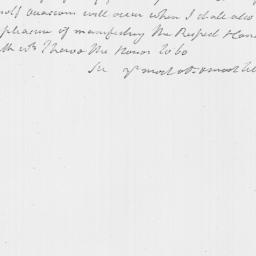 occasions will occur when I shall also
pleasure of manifesting the Respect
I have the Honor to be
Sir yr most obt & most